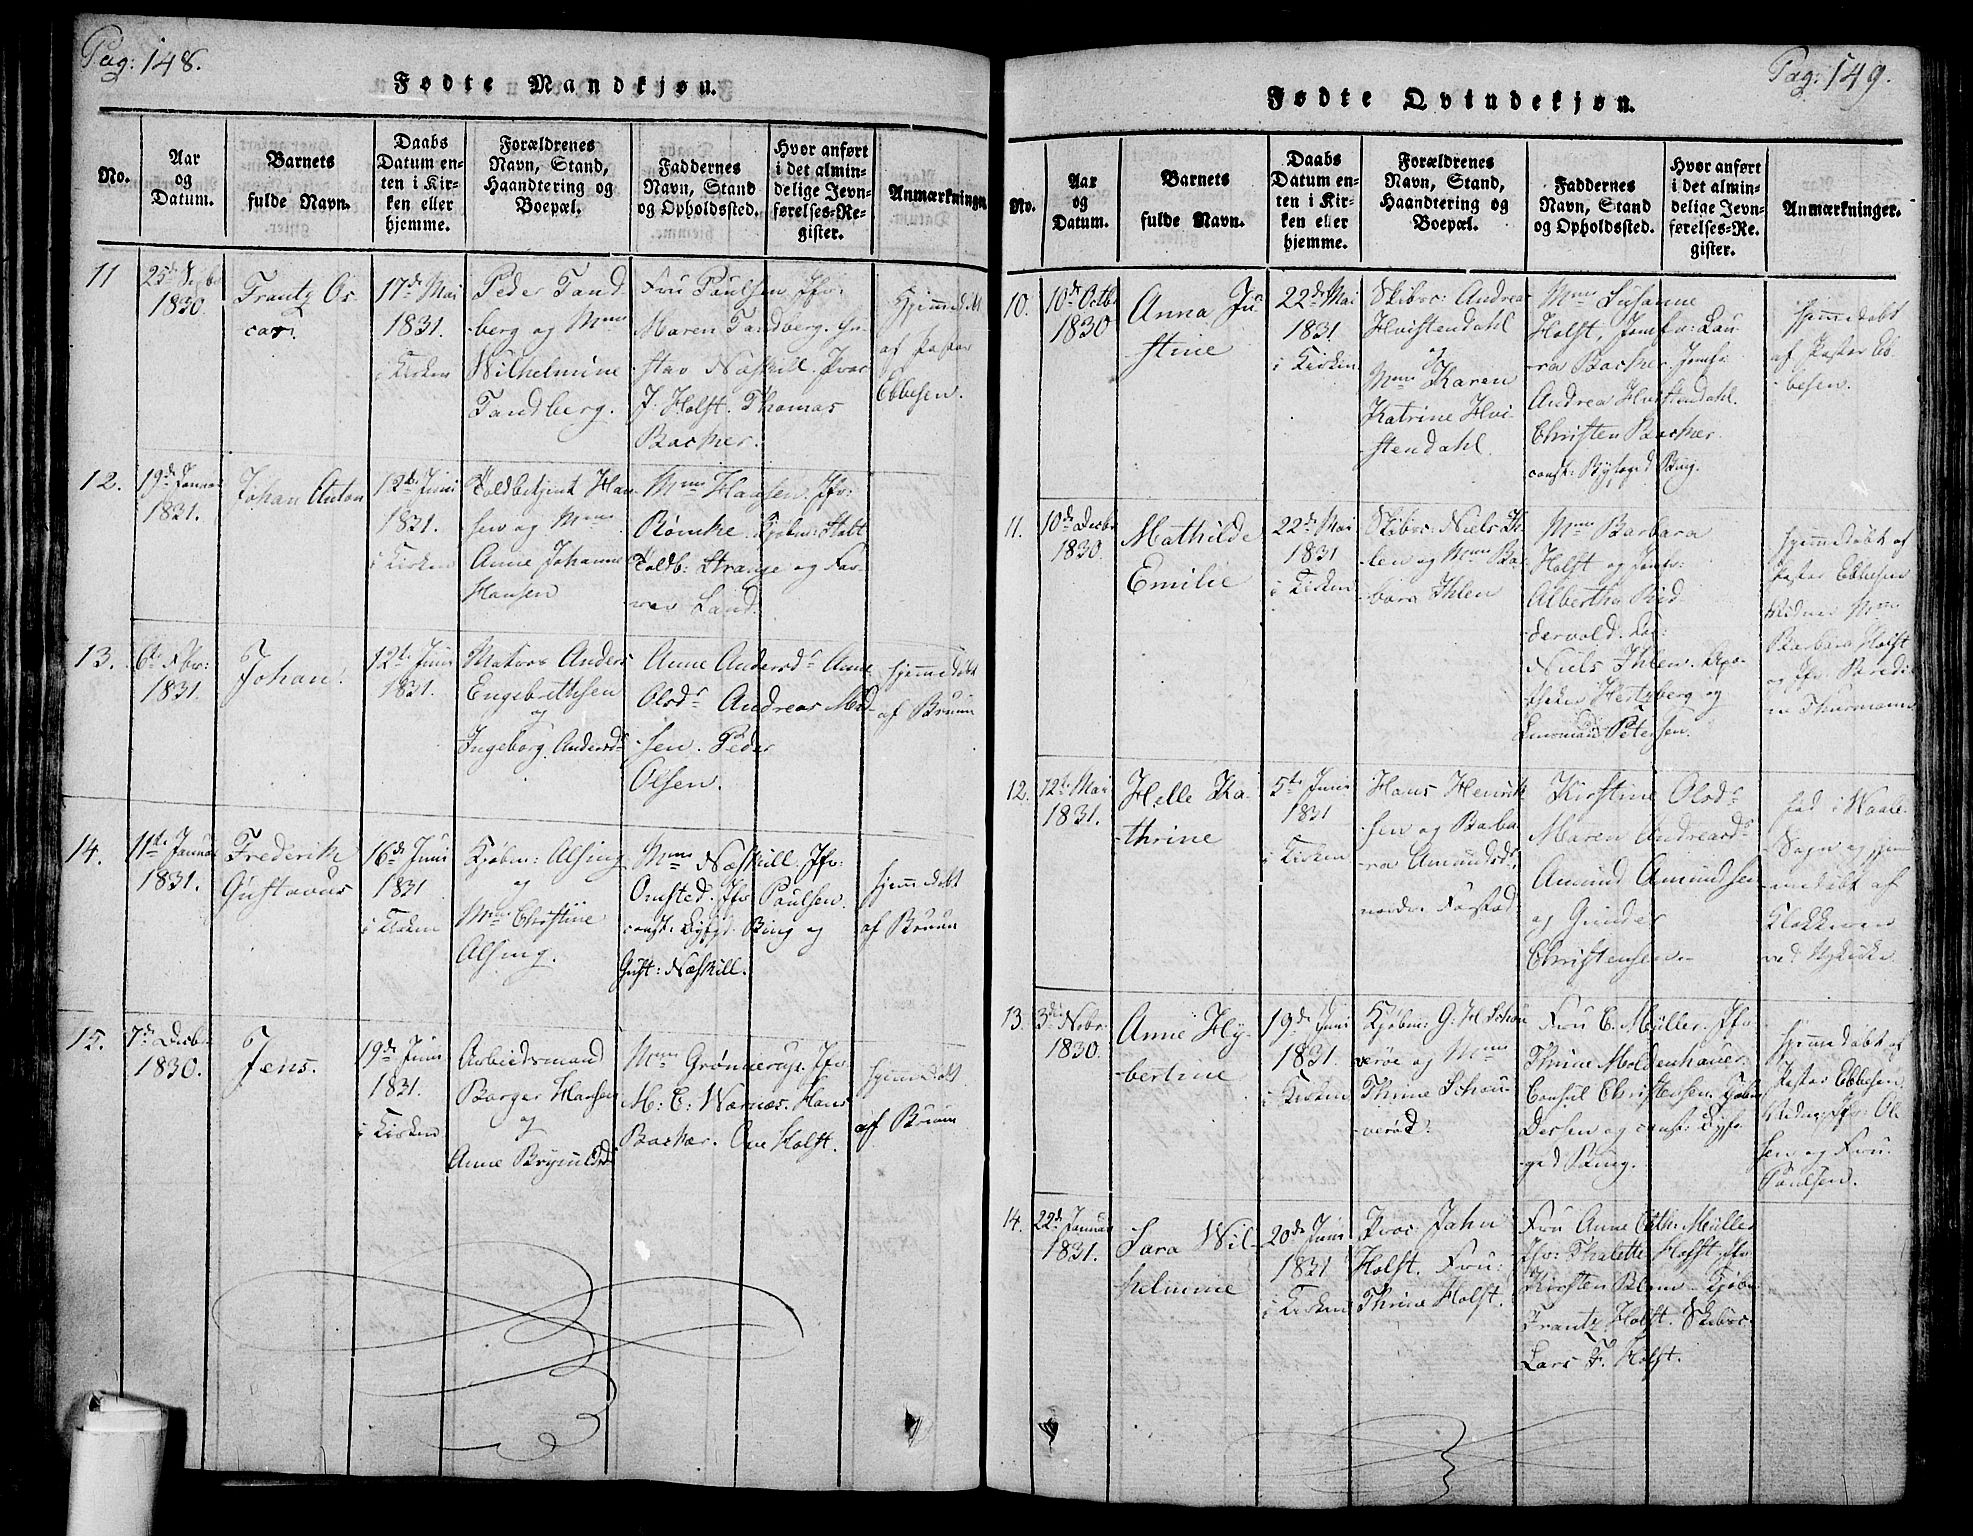 Pag: 148.
Fødte Mandkjøn.
No.
Aar
og
Datum.
Barnets
fulde Navn.
Daabs
Datum en-
ten i Kir-
ken eller
hjemme.
Forældrenes
Navn, Stand,
Haandtering og
Boepæl.
Faddernes
Navn, Stand
og Opholdssted.
Hvor anført
i det almin-
delige Jevn-
førelses-Re-
gister.
Anmærkninger
11
1830.
Frantz Os-
car.
17de Mai
1831.
i Kirken
Peder Tand-
berg og Mme
Wilhelmine
Tandberg.
Fru Paulsen. Jfr:
Maren Tandberg. Gu-
stav Næskill. Proc
J. Holst. Thomas
Backer.
Hjemmedøbt
af Pastor
Ebbesen.
12.
19de Januar
1831.
Johan Anton
12te Juni
1831.
i Kirken
Toldbetjent Han-
sen og Mme
Anne Johanne
Hansen
Mme Hansen. Jfr:
Rømcke. Kjøbm: Holst
Toldb: Strange og Far-
ver Land.
13.
6te Fbr:
1831.
Johan.
12te Juni
1831.
Matros Anders
Engebrethsen
og
Ingeborg Andersdr
Anne Andersdr Anne
Olsdr Andreas Mad-
sen. Peder
Olsen.
Hjemmedøbt
af Bruun
14.
11te Januar
1831.
Frederik
Gustavus
16de Juni
1831
i Kirken
Kjøbm: Alsing
og
Mme Christine
Alsing.
Mme Næskill. Jfr.
Omsted. Jfr Paulsen.
const. Byfgd. Bing og
Gust: Næskill.
Hjemmedøbt
af Bruun
15.
7de Decbr
1830.
Jens.
19de Juni
1831.
i Kirken
Arbeidsmand
Børger Hansen
og
Anne Brynildsdr
Mme Grønnerup. Jfr
M: E: Warnæs. Hans
Backer. Ove Holst.
Hjemmedøbt
af Bruun
Pag: 149.
Fødte Qvindekjøn.
No.
Aar
og
Datum.
Barnets
fulde Navn.
Daabs
Datum en-
ten i Kir-
ken eller
hjemme.
Forældrenes
Navn, Stand,
Haandtering og
Boepæl.
Faddernes
Navn, Stand
og Opholdssted.
Hvor anført
i det almin-
delige Jevn-
førelses-Re-
gister.
Anmærkninger.
10.
10de Octbr
1830
Anna Ju-
stine
22de Mai
1831.
i Kirken
Skibsc: Andreas
Hvistendahl
og
Mme Karen
Katrine Hvi-
stendahl.
Mme Susanne
Holst, Jomfr: Lau-
ra Backer. Jomfr
Andrea Hvistendahl.
Christen Backer.
const: Byfoged Bing.
Hjemmedøbt
af Pastor Eb-
besen.
11.
10de Decbr
1830.
Mathilde
Emilie
22de Mai
1831
i Kirken
Skibsc: Niels Ih-
len og Mme Bar-
bara Ihlen
Mme Barbara
Holst og Jomfr.
Albertha Rid-
dervold.
Niels Ihlen. Apo-
theker Hertzberg og
Lensmand Petersen.
Hjemmedøbt af
Pastor Ebbesen
Vidner Mme
Barbara Holst
og Jfr Bredi-
ne Thurmann
12.
12te Mai
1831.
Helle Ka-
thrine
5te Juni
1831
i Kirken
Hans Henrik-
sen og Barba-
ra Amundsdr.
nordre Førstad.
Kirstine Olsdr
Maren Andreasdr
Amund Amundsen
og Gunder
Christensen.
fød i Waale
Sogn og hjem-
medøbt af
Klokkeren
ved
13.
3die Nvbr.
1830.
Anne Hy-
bertine
19de Juni
1831.
i Kirken
Kjøbm: G: H Schou-
verøe og Mme
Thrine Schou-
verøe.
Fru C. Müller. Jfr
Thrine Moldenhauer
Consul Christensen.
og const: Byfo-
ged Bing.
Hjemmedøbt af
Pastor Ebbesen.
Vidner, Jfr: Ol-
sen og Fru
Paulsen.
14.
22de Januar
1831.
Sara Wil-
helmine
20de Juni
1831
i Kirken
Proc: John
Holst. Fru:
Thrine Holst.
Fru Anne Cath: Müller
Jfr: Thalette Holst. Jfr.
Kirsten Blom. Kjøbm
Frantz Holst. Skibsc.
Lars F. Holst.